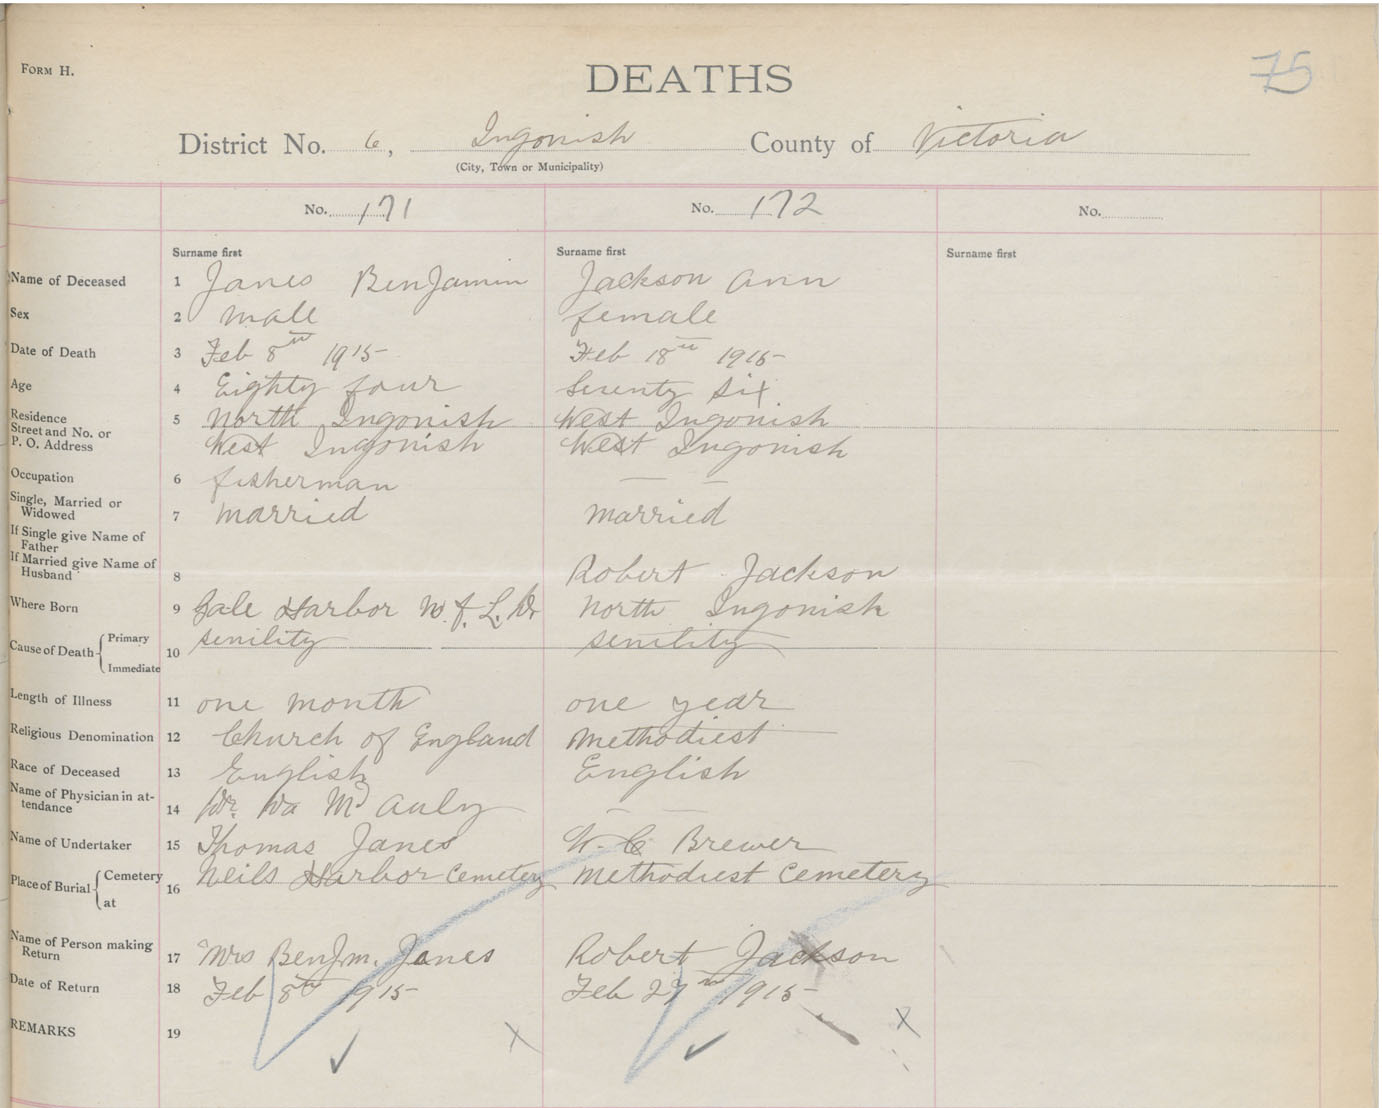 FORM H.
DEATHS
75
District No. 6, Ingonish County of Victoria
(City, Town or Municipality)
No. 171 No. 172 No.
Surname first Surname first Surname first
Name of Deceased 1 Janes BenJamin Jackson Ann
Sex 2 male female
Date of Death 3 Feb 8th 1915 Feb 18th 1915
Age 4 Eighty four Seventy six
Residence 5 North Ingonish West Ingonish
Street and No. or
P. O. Address West Ingonish West Ingonish
Occupation 6 fisherman — —
Single, Married or
Widowed 7 married married
If Single give Name of
Father
If Married give Name of
Husband 8 Robert Jackson
Where Born 9 Gale Harbor N. f. L. North Ingonish
Cause of Death Primary senility senility
10
Immediate
Length of Illness 11 one month one year
Religious Denomination 12 Church of England Methodiest
Race of Deceased 13 English English
Name of Physician in at-
tendance 14 Dr. Da Mc Auly — —
Name of Undertaker 15 Thomas Janes W. C Brewer
Place of Burial Cemetery 16 Neils Harbor Cemetery Methodiest Cemetery
at
Name of Person making
Return 17 Mrs BenJm. Janes Robert Jackson
Date of Return 18 Feb 8th 1915 Feb 27th 1915
REMARKS 19